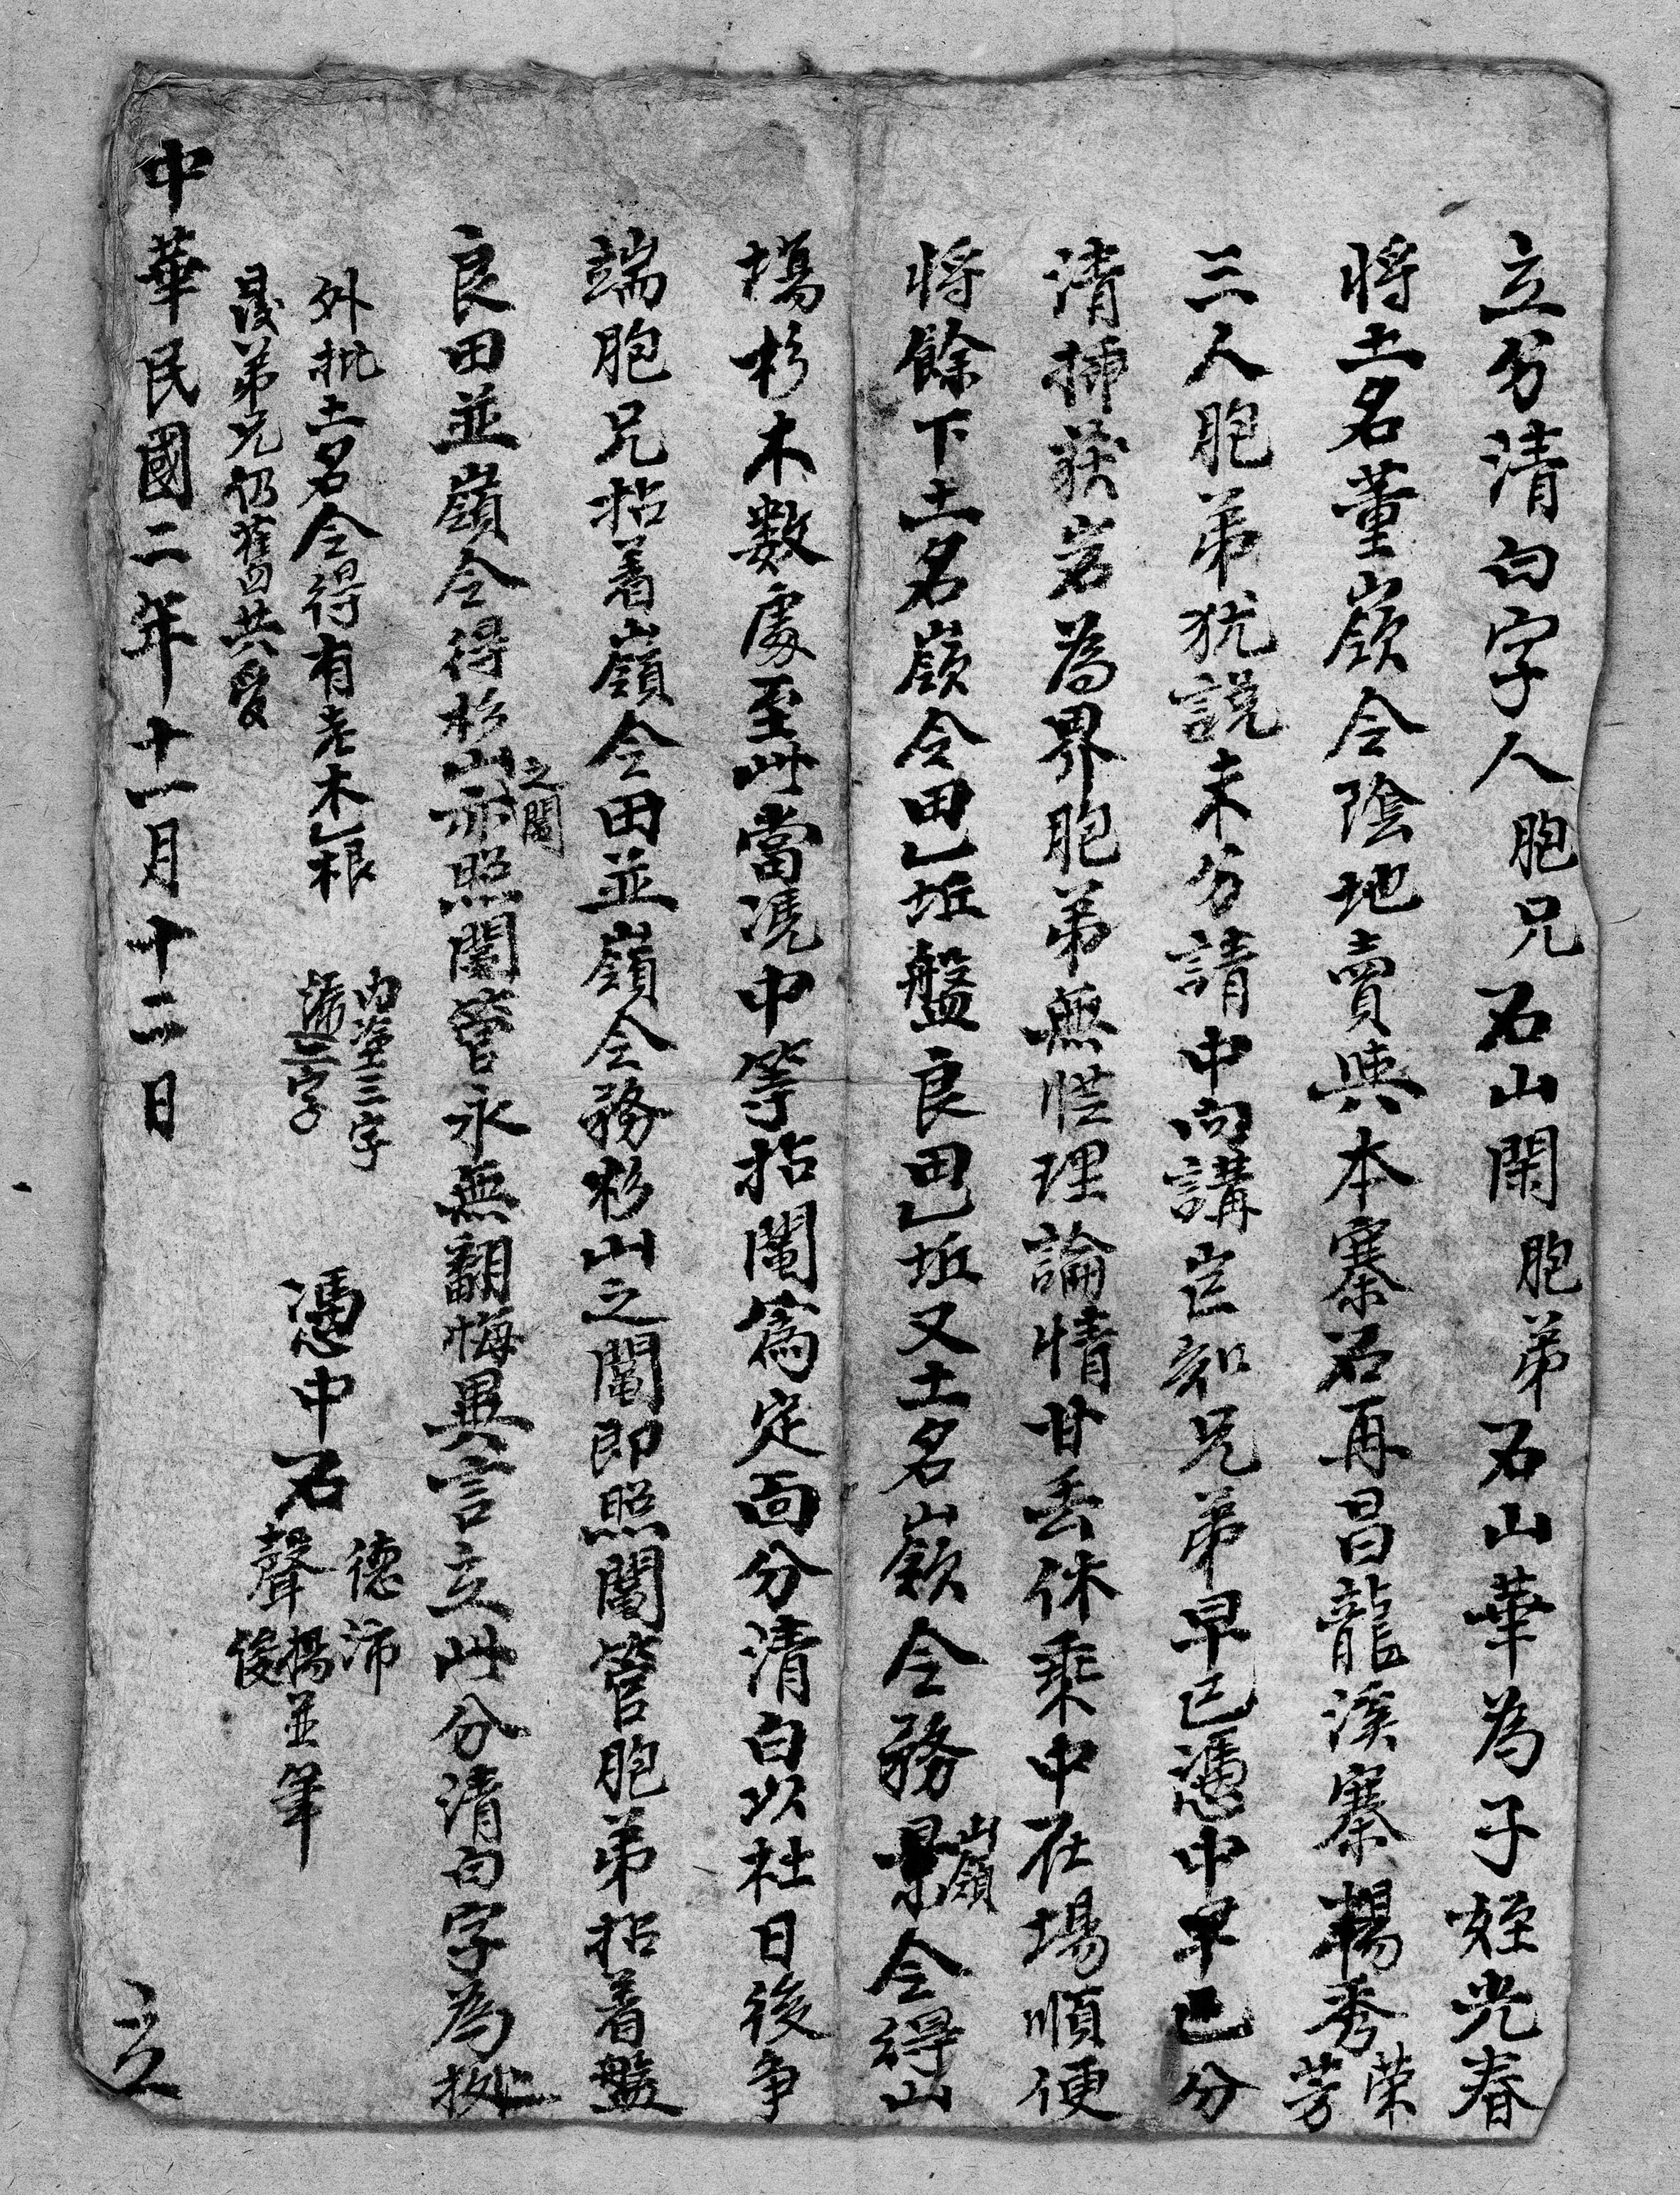 立分清白字人胞兄石山開胞弟石山華為子姪光春
將土名董嶺令陰地賣與本寨石再昌龍溪寨楊秀榮芳
三人胞弟犹説未分請中向講豈知兄弟早已憑中早已分
清插岩為界胞弟無性理論情甘丟休乘中在場順便
將餘下土名嶺令田一坵盤良田一坵又土名嶺令務嶺令得山
塲杉木數處至此當憑中等拈鬮為定面分清白以杜日後争
端胞兄拈着嶺令田並嶺令務杉山之鬮即照鬮管胞弟拈着盤
良田並嶺令得杉山之鬮亦照鬮管永無翻悔異言立此分清白字為據
外批土名令得有老木一根
弟兄仍舊四共受
内塗三字
添三字
憑中石德沛聲揚俊並筆
中華民國二年十一月十二日 立